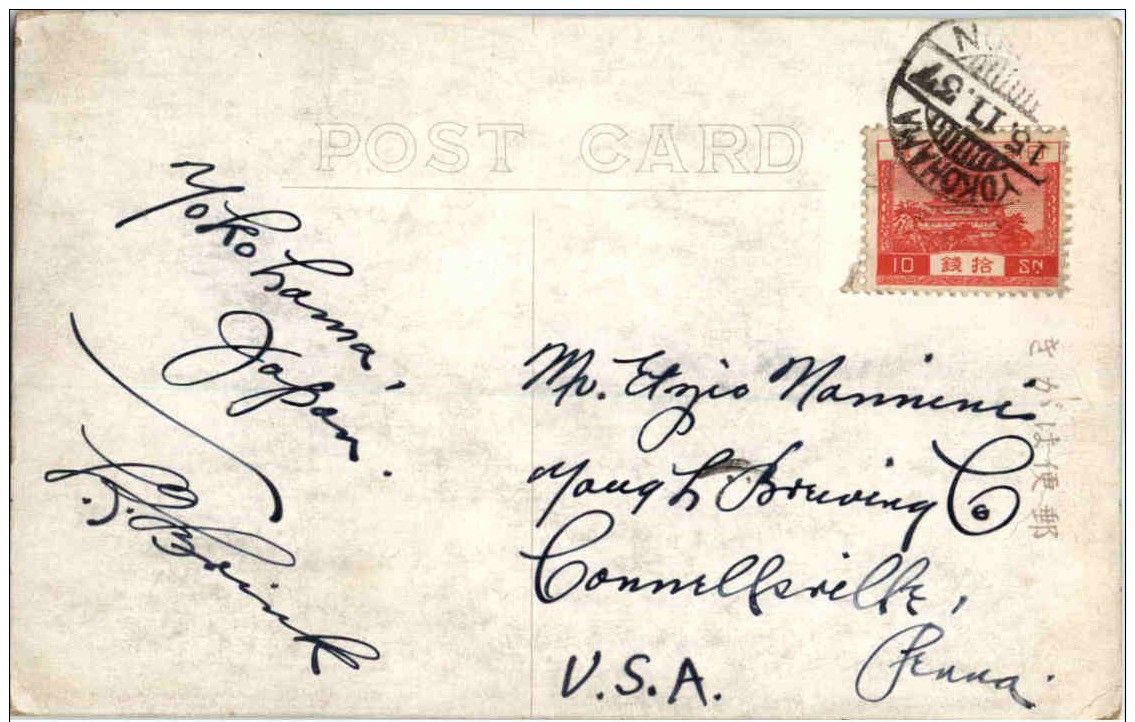 POST CARD
YOKOHAMA
15.11.37
10 拾銭 SN.
きがは便郵
Yokohama,
Japan.
Mr. Ezio Nannini
Yough Brewing Co
Connellsville,
Penna.
U.S.A.